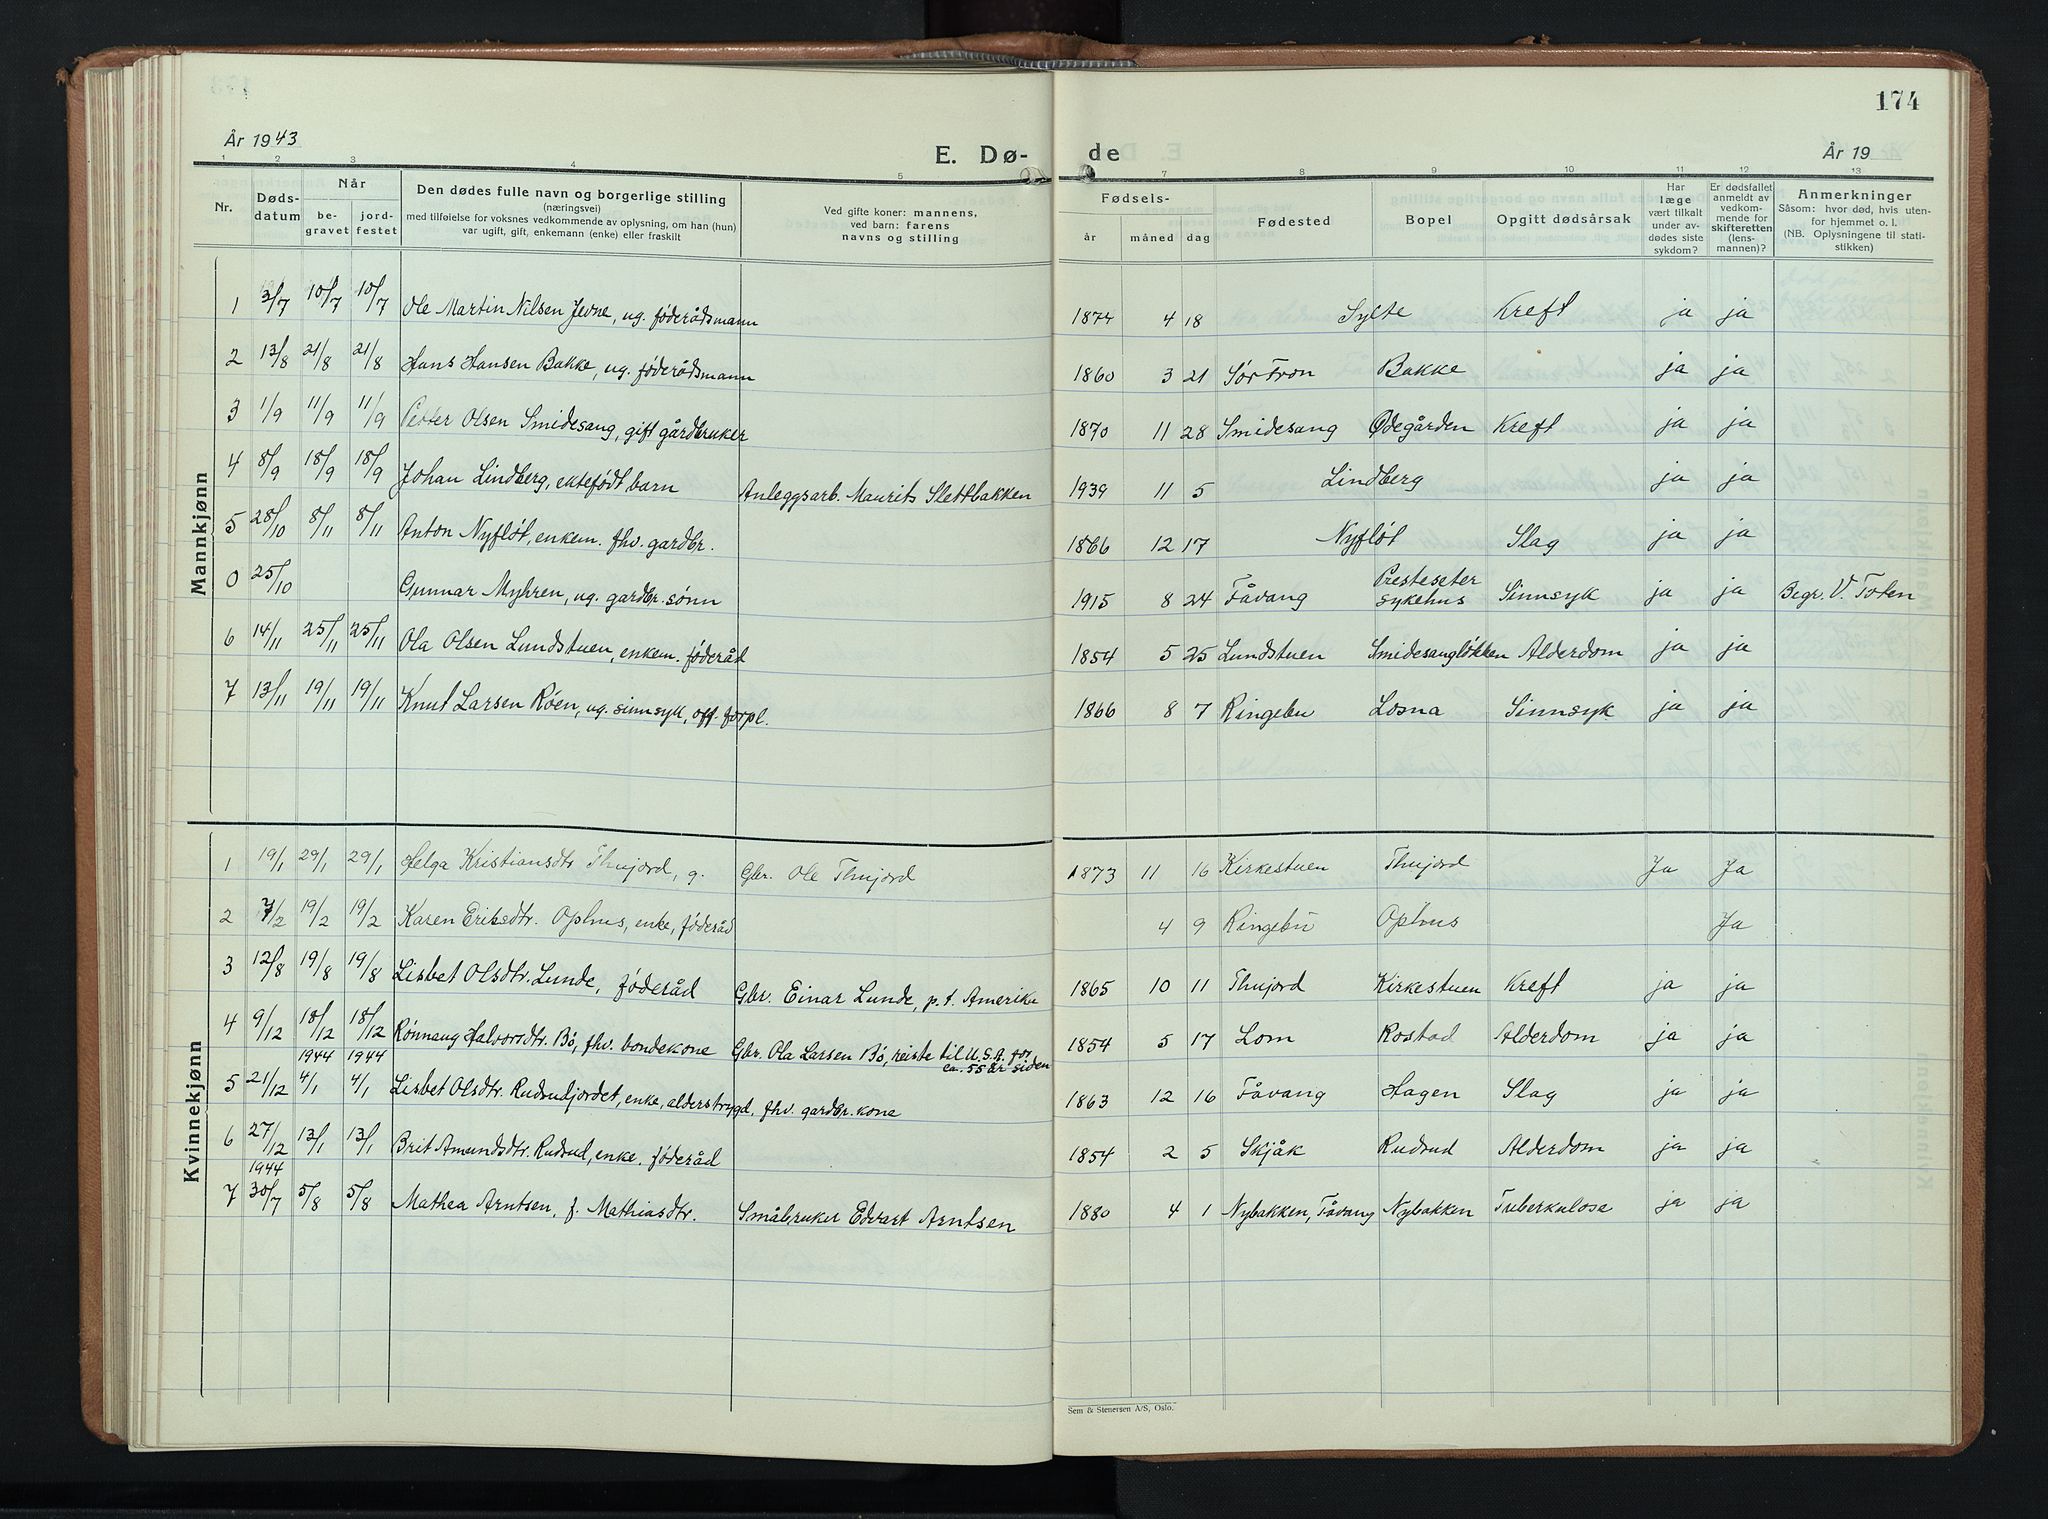 174
År 1943
E. Dø-
de
År 19
1 2 3 4 5 7 8 9 10 11 12 13
Nr.
Døds-
datum
Når
be-
gravet
jord-
festet
Den dødes fulle navn og borgerlige stilling
(næringsvei)
med tilføielse for voksnes vedkommende av oplysning, om han (hun)
var ugift, gift, enkemann (enke) eller fraskilt
Ved gifte koner: mannens,
ved barn: farens
navns og stilling
Fødsels-
år måned dag
Fødested
Bopel
Opgitt dødsårsak
Har
læge
vært tilkalt
under av-
dødes siste
sykdom?
Er dødsfallet
anmeldt av
vedkom-
mende for
skifteretten
(lens-
mannen)?
Anmerkninger
Såsom: hvor død, hvis uten-
for hjemmet o. l.
(NB. Oplysningene til stati-
stikken)
Mannkjønn
1 3/7 10/7 10/7 Ole Martin Nilsen Jevne, ug. føderådsmann 1874 4 18 Sylte Kreft ja ja
2 13/8 21/8 21/8 Hans Hansen Bakke, ug. føderådsmann 1860 3 21 Sør Fron Bakke ja ja
3 1/9 11/9 11/9 Petter Olsen Smidesang, gift gårdbruker 1870 11 28 Smidesang Ødegården Kreft ja ja
4 8/9 18/9 18/9 Johan Lindberg, ektefødt barn Anleggsarb. Maurits Slettbakken 1939 11 5 Lindberg ja ja
5 28/10 8/11 8/11 Anton Nyfløt, enkem. fhv. gardbr. 1866 12 17 Nyfløt Slag ja ja
0 25/10 Gunnar Myhren, ug. gardbr. sønn 1915 8 24 Fåvang Presteseter sykehus Sinnsyk ja ja Begr. V. Toten
6 14/11 25/11 25/11 Ola Olsen Lundstuen, enkem. føderåd 1854 5 25 Lundstuen Smidesangløkken Alderdom ja ja
7 13/11 19/11 19/11 Knut Larsen Røen, ug. sinnsyk, off. forpl. 1866 8 7 Ringebu Losna Sinnsyk ja ja
Kvinnekjønn
1 19/1 29/1 29/1 Helga Kristiansdtr Thujord, g. Gbr. Ole Thujord 1873 11 16 Kirkestuen Thujord Ja Ja
2 7/2 19/2 19/2 Karen Eriksdtr. Ophus, enke, føderåd 4 9 Ringebu Ophus Ja
3 12/8 19/8 19/8 Lisbet Olsdtr. Lunde, føderåd Gbr. Einar Lunde, p. t. Amerika 1865 10 11 Thujord Kirkestuen Kreft ja ja
4 9/12 18/12 18/12 Rønnaug Halvorsdtr. Bø, fhv. bondekone Gbr. Ola Larsen Bø, reiste til U.S.A. for ca. 55 år siden 1854 5 17 Lom Rostad Alderdom ja ja
1944 1944
5 21/12 4/1 4/1 Lisbet Olsdtr. Rudsudjordet, enke, alderstrygd, fhv. gardbr. kone 1863 12 16 Fåvang Hagen Slag ja ja
6 27/12 13/1 13/1 Brit Amundsdtr. Rudsud, enke. føderåd 1854 2 5 Skjåk Rudsud Alderdom ja ja
1944
7 30/7 5/8 5/8 Mathea Arntsen, f. Mathiasdtr. Småbruker Edvart Arntsen 1880 4 1 Nybakken, Fåvang Nybakken Tuberkulose ja ja
Sem & Stenersen A/S, Oslo.